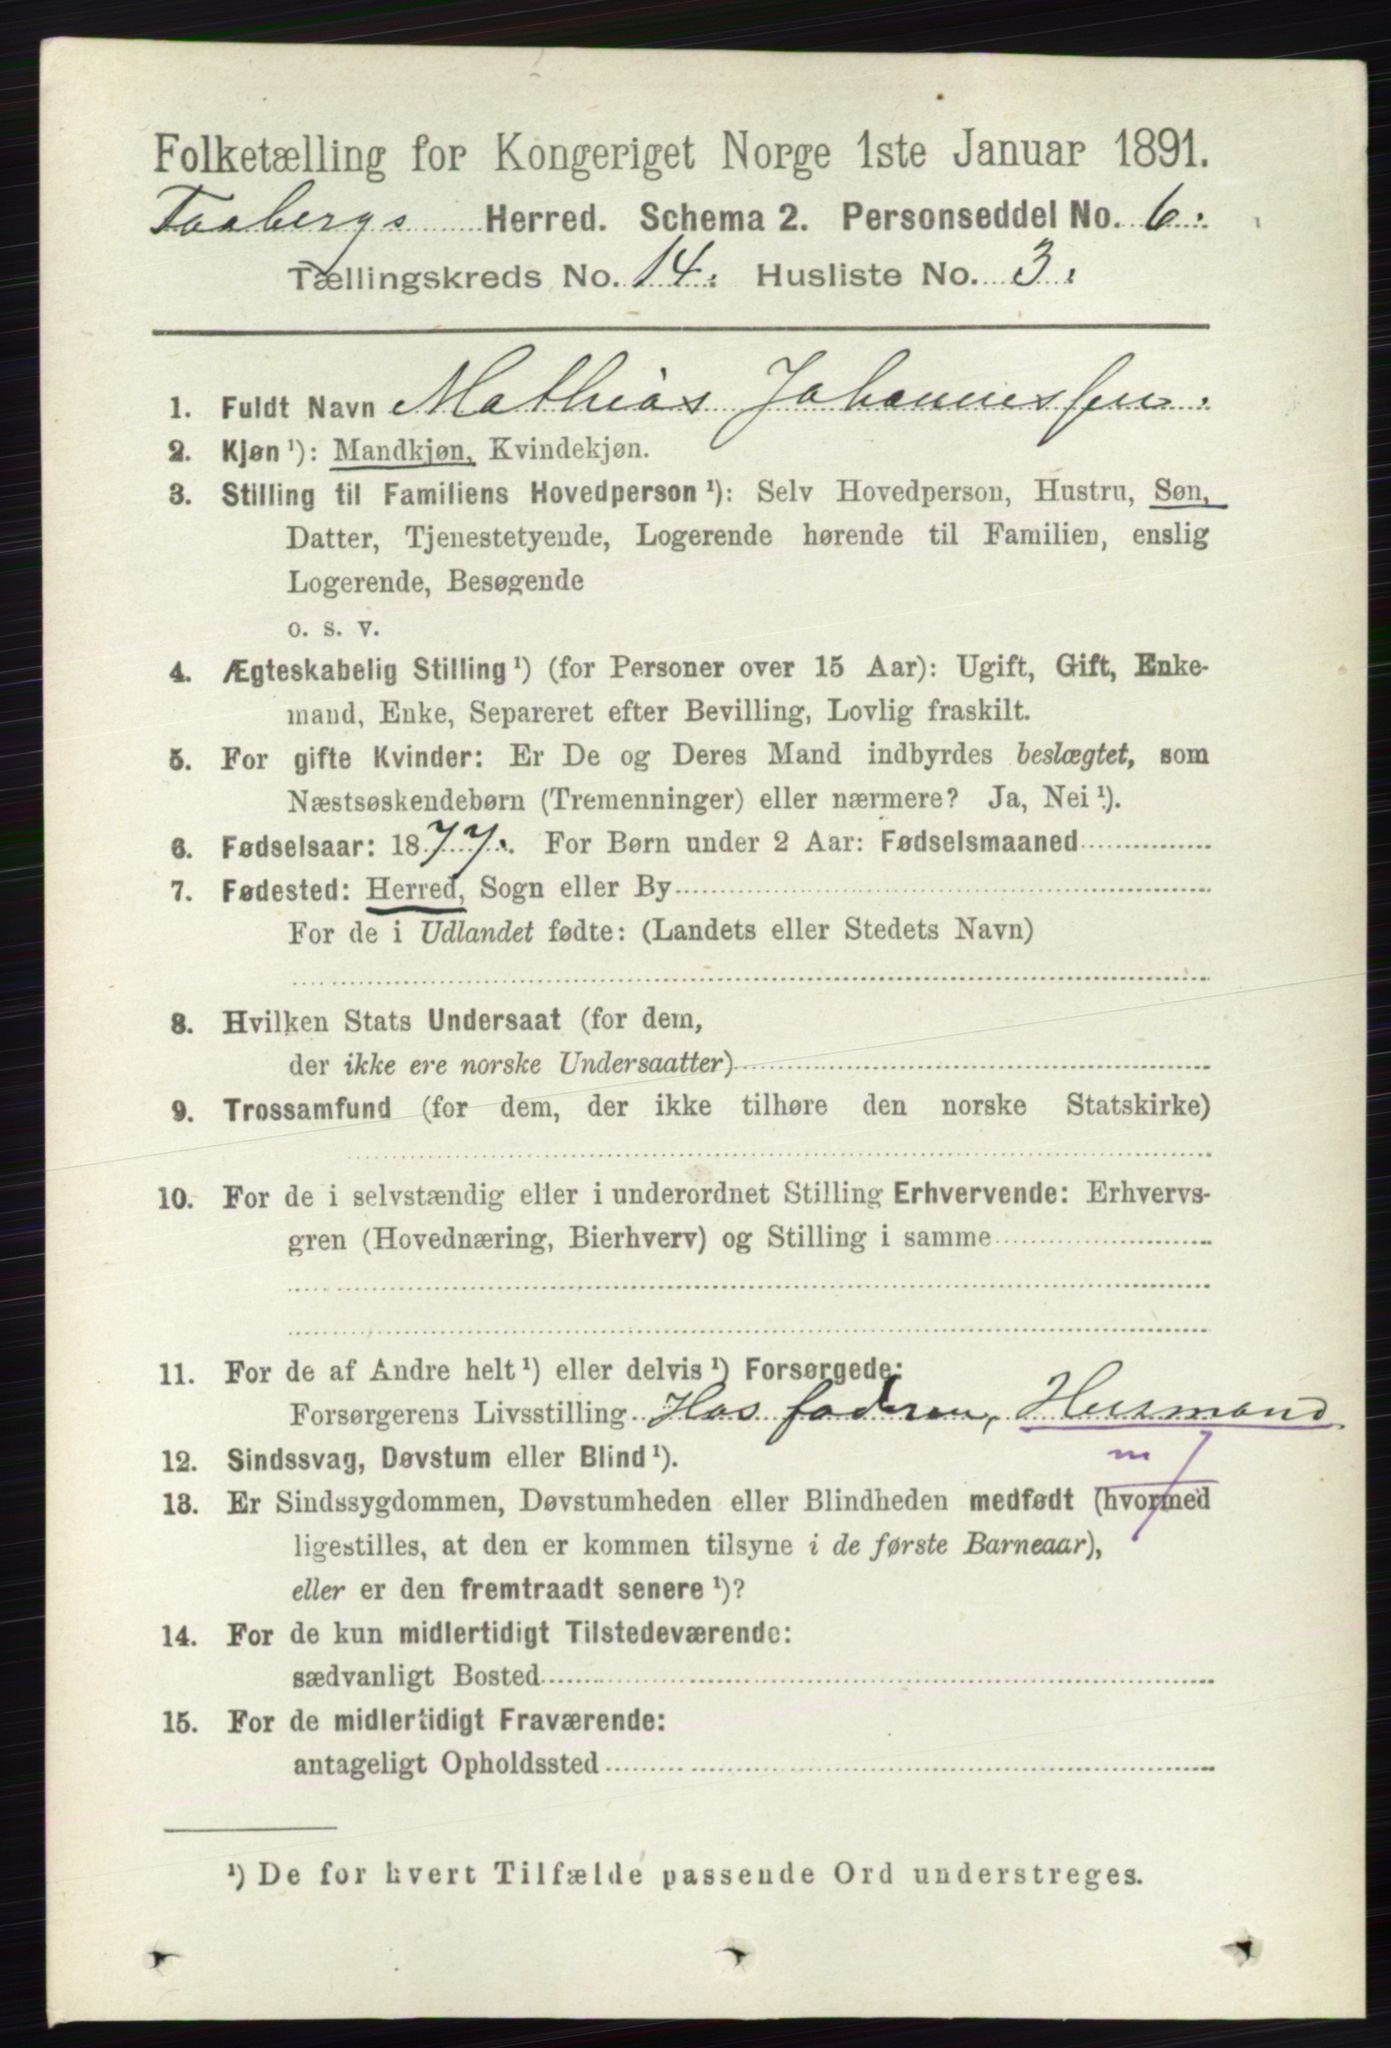 Folketælling for Kongeriget Norge 1ste Januar 1891.
Faabergs Herred. Schema 2. Personseddel No. 6.
Tællingskreds No. 14. Husliste No. 3.
1. Fuldt Navn Mathias Johannessen.
2. Kjøn ¹): Mandkjøn, Kvindekjøn.
3. Stilling til Familiens Hovedperson ¹): Selv Hovedperson, Hustru, Søn,
Datter, Tjenestetyende, Logerende hørende til Familien, enslig
Logerende, Besøgende
o. s. v.
4. Ægteskabelig Stilling ¹) (for Personer over 15 Aar): Ugift, Gift, Enke-
mand, Enke, Separeret efter Bevilling, Lovlig fraskilt.
5. For gifte Kvinder: Er De og Deres Mand indbyrdes beslægtet, som
Næstsøskendebørn (Tremenninger) eller nærmere? Ja, Nei ¹).
6. Fødselsaar: 1877. For Børn under 2 Aar: Fødselsmaaned
7. Fødested: Herred, Sogn eller By
For de i Udlandet fødte: (Landets eller Stedets Navn)
8. Hvilken Stats Undersaat (for dem,
der ikke ere norske Undersaatter)
9. Trossamfund (for dem, der ikke tilhøre den norske Statskirke)
10. For de i selvstændig eller i underordnet Stilling Erhvervende: Erhvervs-
gren (Hovednæring, Bierhverv) og Stilling i samme
11. For de af Andre helt ¹) eller delvis ¹) Forsørgede:
Forsørgerens Livsstilling Hos faderen, Husmand
12. Sindssvag, Døvstum eller Blind ¹).
m
13. Er Sindssygdommen, Døvstumheden eller Blindheden medfødt (hvormed
ligestilles, at den er kommen tilsyne i de første Barneaar),
eller er den fremtraadt senere ¹)?
14. For de kun midlertidigt Tilstedeværende:
sædvanligt Bosted
15. For de midlertidigt Fraværende:
antageligt Opholdssted
¹) De for hvert Tilfælde passende Ord understreges.